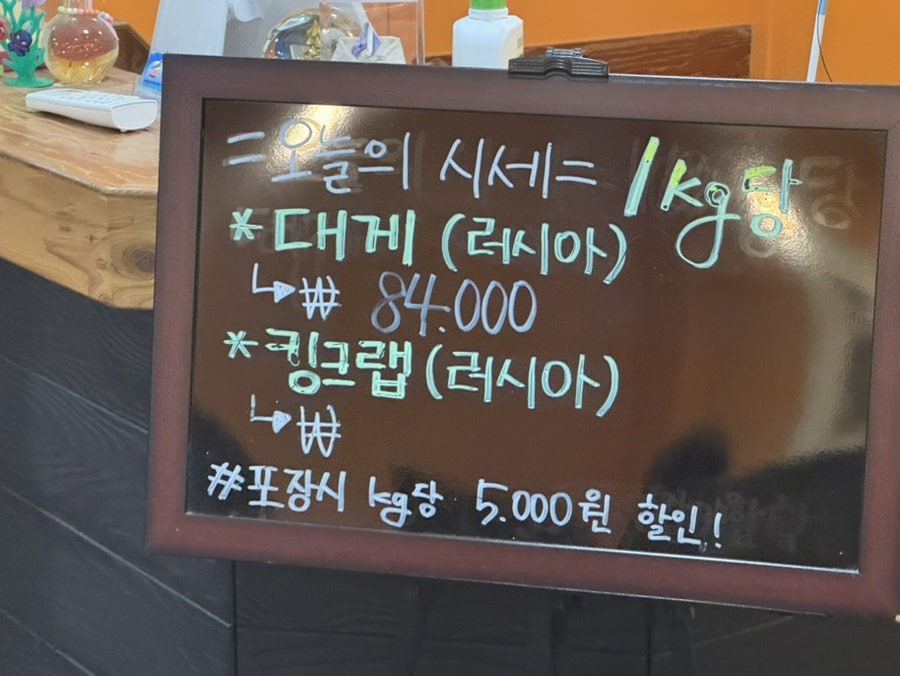 =오늘의 시세= 1kg당
*대게 (러시아)
↳₩ 84.000
*킹크랩 (러시아)
↳₩
#포장시 kg당 5.000원 할인!